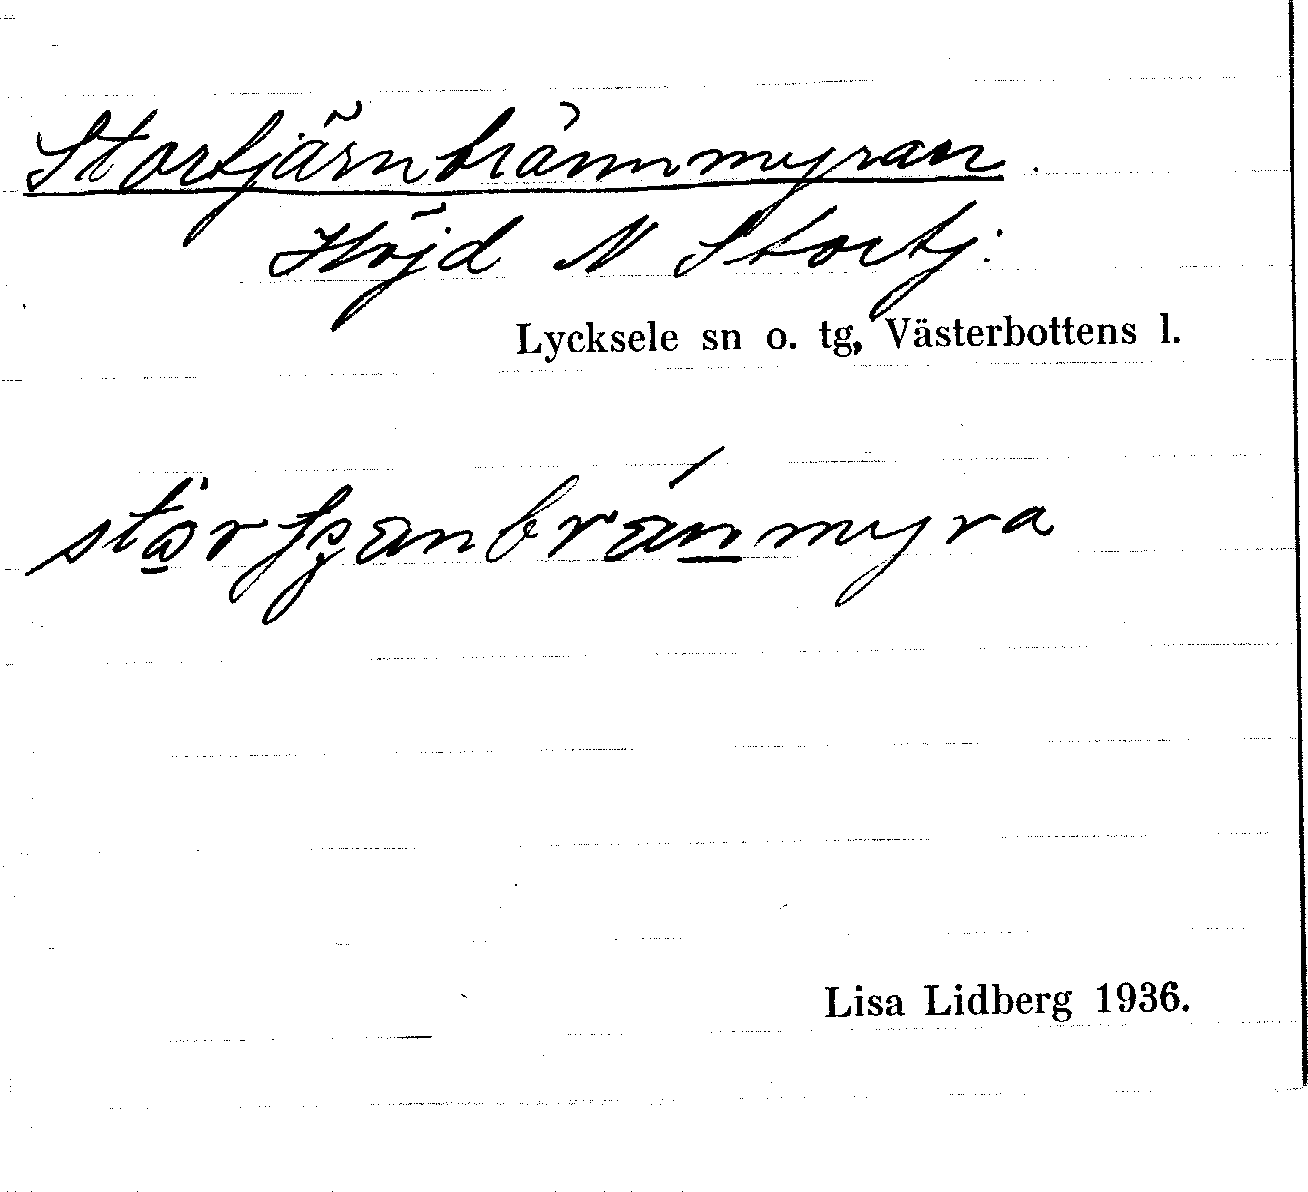 Stortjärnbrännmyran.
Höjd N Stortj.
Lycksele sn o. tg, Västerbottens l.
Lisa Lidberg 1936.